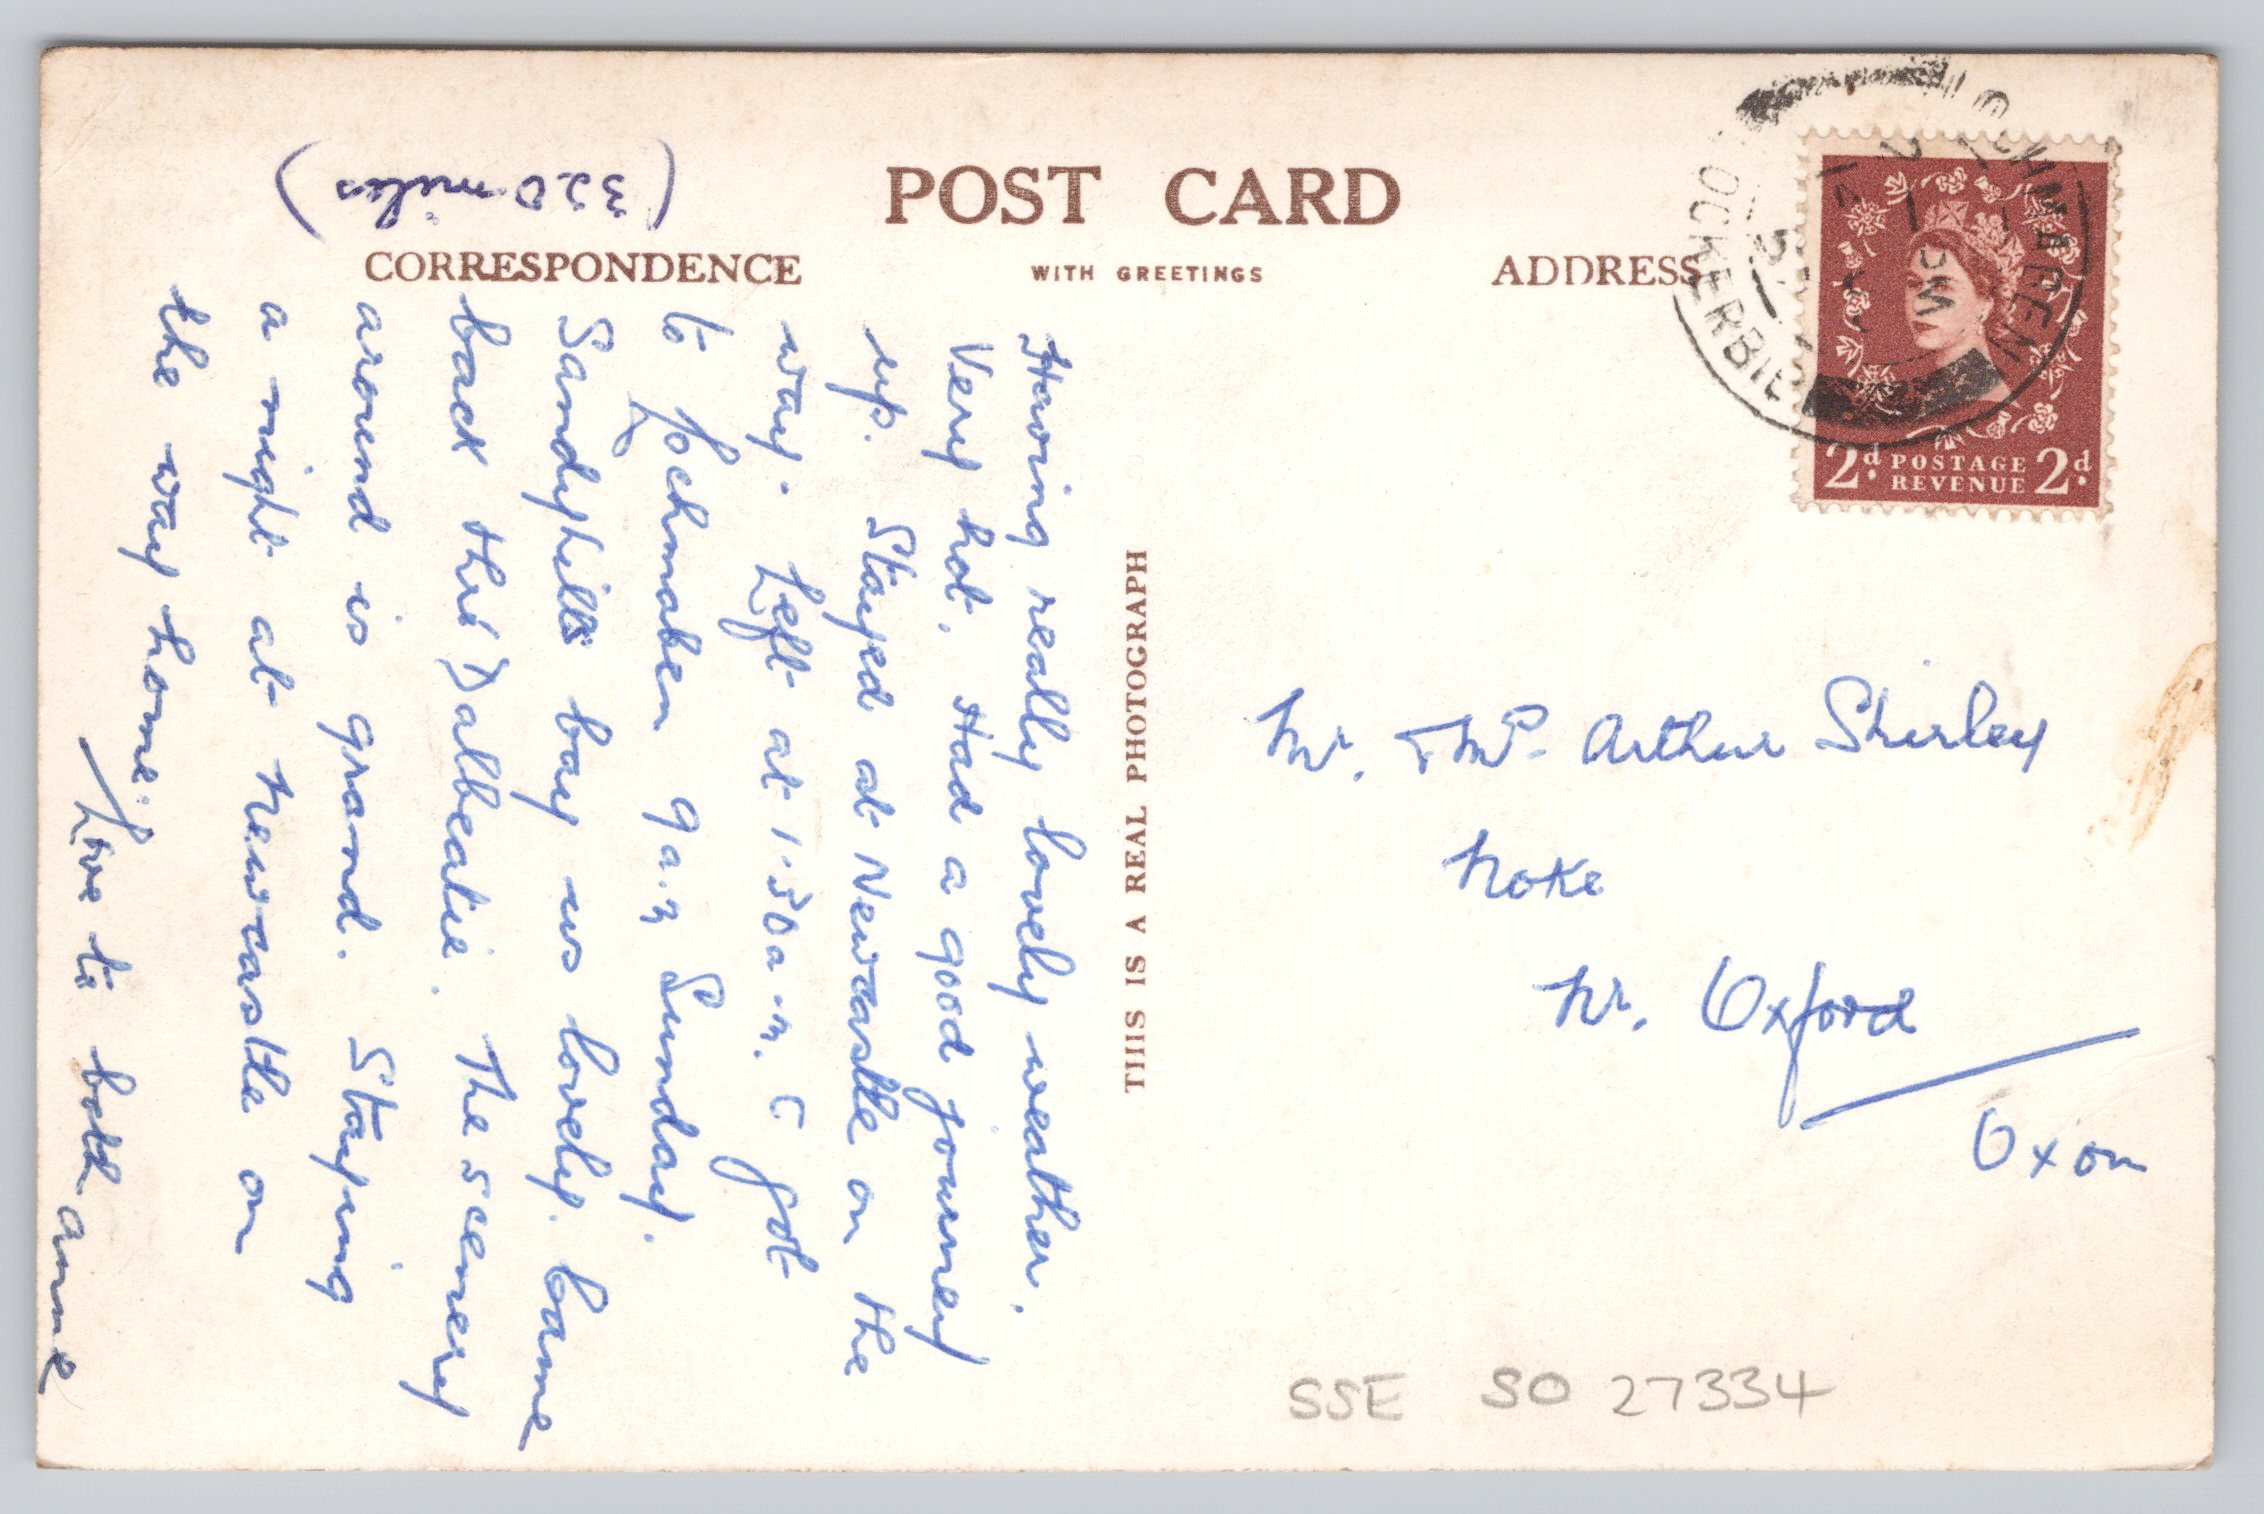 POST CARD
CORRESPONDENCE
WITH GREETINGS
ADDRESS
THIS IS A REAL PHOTOGRAPH
(320 miles)
Having really lovely weather.
Very hot. Had a good journey
up. Stayed at Newcastle on the
way. Left at 1.30 a.m. & got
to Lochmaben 9 a.m Sunday.
Sandyhills bay ws lovely. Came
back thro' Dalbeatie. The scenery
around is grand. Staying
a night at Newcastle on
the way home.
Love to both Anne
Mr. & Mrs. Arthur Shirley
Noke
Nr. Oxford
Oxon
SSE SO 27334
LOCHMABEN
LOCKERBIE
2d. POSTAGE REVENUE 2d.